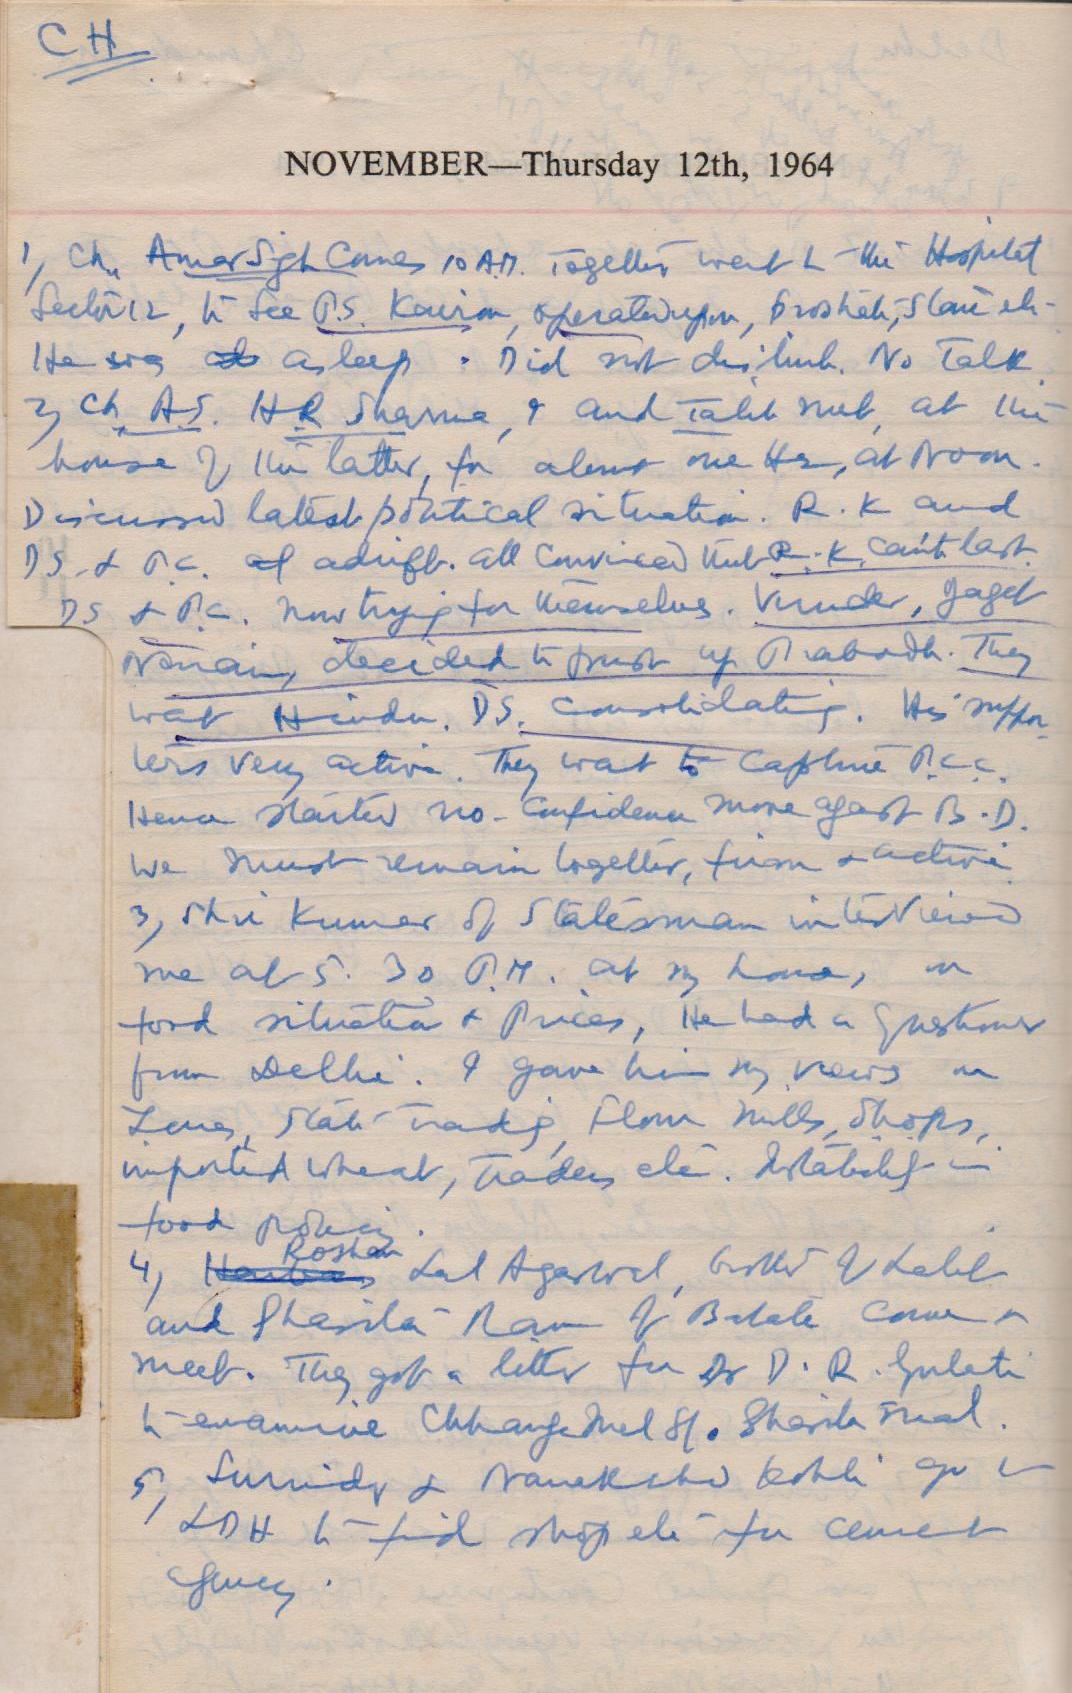 CH
NOVEMBER—Thursday 12th, 1964
1, Ch. Amar Sigh Comes 10 A.M. Together went to the Hospital
Sector 12, to See P.S. Kairon, operated upon, Prostate, Stone etc.
He was asleep. Did not disturb. No Talk.
2, Ch. A.S. H.R Sharma, I and Talib met, at the
house of the latter, for about one Hr, at Noon.
Discussed latest political situation. R.K and
DS. & P.C. adrift. All Convinced that R.K. can't last.
DS & P.C. now trying for themselves. Virender, Jagat
Narain, decided to prust up Prabodh. They
want Hindu. DS. consolidating. His suppor-
ters very active. They want to Capture P.C.C.
Hence started no-Confidence move agast B.D.
We must remain together, firm & active
3, Shri Kumar of Statesman interviewed
me at 5.30 P.M. at my house, on
food situation & Prices, He had a Questioner
from Delhi. I gave him my views on
Zones, State Tradig, Flour Mills, Shops,
imported wheat, Traders etc. Instability in
food policy.
4, Roshan Lal Agarwal, brother of
and Ram of Batala Come &
meet. They got a letter for Dr D.R. Gulati
to examine S/o.
5, & Kohli go to
LDH to find shop etc for cement
agency.